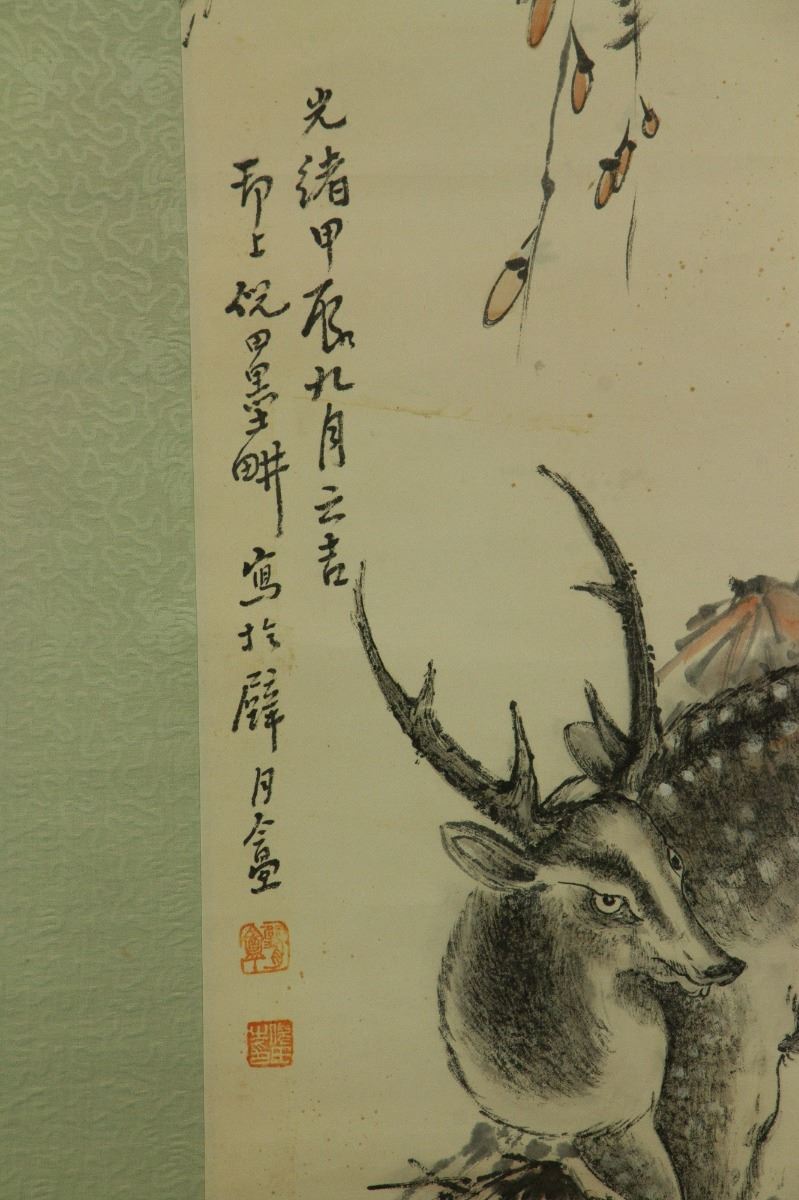 光緒甲辰九月之吉
邗上倪田墨畊寫於璧月盦